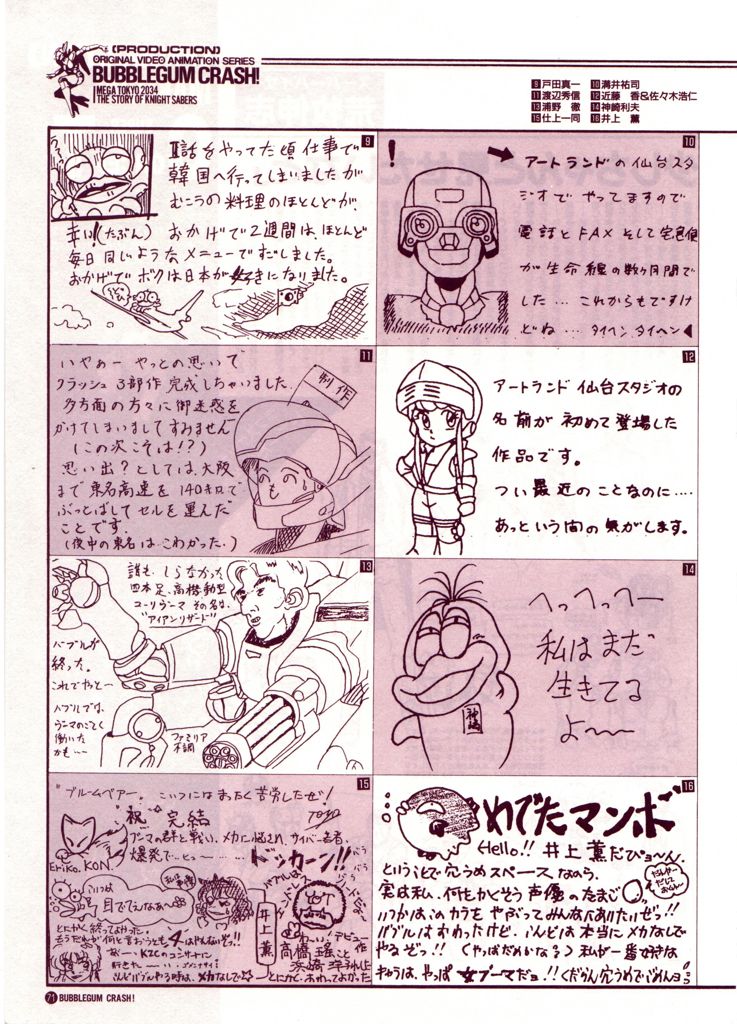 [PRODUCTION]
ORIGINAL VIDEO ANIMATION SERIES
BUBBLEGUM CRASH!
MEGA TOKYO 2034
THE STORY OF KNIGHT SABERS
9 戸田真一 10 溝井祐司
11 渡辺秀信 12 近藤 香&佐々木浩仁
13 浦野 徹 14 神崎利夫
15 仕上一同 16 井上 薫
9
I話をやってた頃仕事で
韓国へ行ってしまいましたが
むこうの料理のほとんどが、
辛い!(たぶん) おかげで2週間は、ほとんど
毎日同じようなメニューですごしました。
おかげでボクは日本が好きになりました。
10
!
アートランドの仙台スタ
ジオでやってますので
電話とFAXそして宅急便
が生命線の数ヶ月間で
した…これからもですけ
どね…タイヘンタイヘン
11
いやぁー やっとの思いで
クラッシュ3部作完成しちゃいました。
多方面の方々に御迷惑を
かけてしまいましてすみません
(この次こそは!?)
思い出?としては、大阪
まで東名高速を140キロで
ぶっとばしてセルを運んだ
ことです。
(夜中の東名はこわかった。)
制作
12
アートランド仙台スタジオの
名前が初めて登場した
作品です。
つい最近のことなのに‥‥
あっという間の気がします。
13
誰も、しらなかった
四本足、高機動型
ユーリブーマ その名は、
"アイアンリザード"
バブルが
終った。
これでやっと…
バブルでは、
ブーマのごとく
働いた
かも…
ファミリア
不調
14
へっへっへー
私はまだ
生きてる
よ〜〜
神崎
15
"ブルームベアー。こいつにはまったく苦労したぜ!
祝 完結
ブーマの群と戦い、メカに悩まされ、サイバー若者、
爆発で…ピュー…
ドッカーン!!
Eriko. KON
目でてえなあへ
私は声優
とにかく終ってよかった。
KZCのコンサートに
井上薫
デビュー作
高橋瑤こと
とにかく、おわってよかった
16
めでたマンボ
Hello!! 井上薫だぴょ〜ん。
ということで穴うめスペースなら。
実は私、何をかくそう声優のたまご
いつかはこのカラをやぶってみんなにあいたいぜっ!!
バブルはおわったけど、こんどは本当にメカなしで
やるぞっ!! (やっぱだめかなぁ) 私が一番好きな
キャラは、やっぱ女ブーマだョ!! くだらん穴うめでごめんョ
71 BUBBLEGUM CRASH!